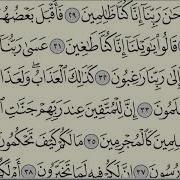 حَٰنَ رَبِّنَآ إِنَّا كُنَّا ظَٰلِمِينَ ٢٩ فَأَقْبَلَ بَعْضُهُمْ
قَالُوا۟ يَٰوَيْلَنَآ إِنَّا كُنَّا طَٰغِينَ ٣١ عَسَىٰ رَبُّنَآ
إِلَىٰ رَبِّنَا رَٰغِبُونَ ٣٢ كَذَٰلِكَ ٱلْعَذَابُ ۖ وَلَعَذَابُ
لَمُونَ ٣٣ إِنَّ لِلْمُتَّقِينَ عِندَ رَبِّهِمْ جَنَّٰتِ
مِينَ كَٱلْمُجْرِمِينَ ٣٥ مَا لَكُمْ كَيْفَ تَحْكُمُونَ
رُسُونَ ٣٧ إِنَّ لَكُمْ فِيهِ لَمَا تَخَيَّرُونَ ٣٨ أَمْ لَكُمْ